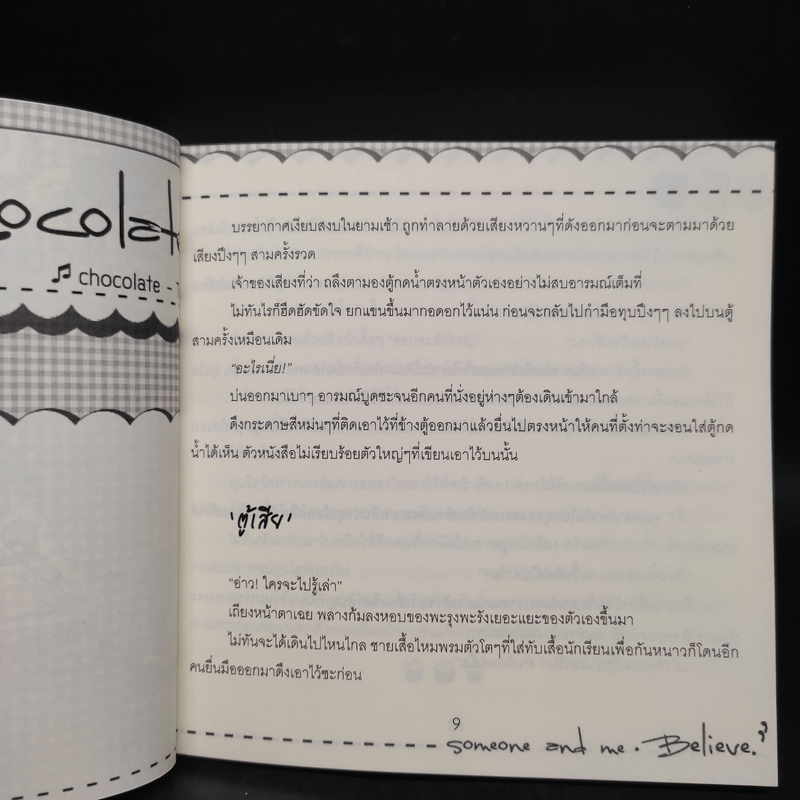 chocolate -
บรรยากาศเงียบสงบในยามเช้า ถูกทำลายด้วยเสียงหวานๆที่ดังออกมาก่อนจะตามมาด้วย
เสียงปึงๆๆ สามครั้งรวด
เจ้าของเสียงที่ว่า ถลึงตามองตู้กดน้ำตรงหน้าตัวเองอย่างไม่สบอารมณ์เต็มที่
ไม่ทันไรก็ฮึดฮัดขัดใจ ยกแขนขึ้นมากอดอกไว้แน่น ก่อนจะกลับไปกำมือทุบปึงๆๆ ลงไปบนตู้
สามครั้งเหมือนเดิม
“อะไรเนี่ย!”
บ่นออกมาเบาๆ อารมณ์บูดซะจนอีกคนที่นั่งอยู่ห่างๆต้องเดินเข้ามาใกล้
ดึงกระดาษสีหม่นๆที่ติดเอาไว้ที่ข้างตู้ออกมาแล้วยื่นไปตรงหน้าให้คนที่ตั้งท่าจะงอนใส่ตู้กด
น้ำได้เห็น ตัวหนังสือไม่เรียบร้อยตัวใหญ่ๆที่เขียนเอาไว้บนนั้น
'ตู้เสีย'
“อ่าว! ใครจะไปรู้เล่า”
เถียงหน้าตาเฉย พลางก้มลงหอบของพะรุงพะรังเยอะแยะของตัวเองขึ้นมา
ไม่ทันจะได้เดินไปไหนไกล ชายเสื้อไหมพรมตัวโตๆที่ใส่ทับเสื้อนักเรียนเพื่อกันหนาวก็โดนอีก
คนยื่นมือออกมาดึงเอาไว้ซะก่อน
9
someone and me. Believe.